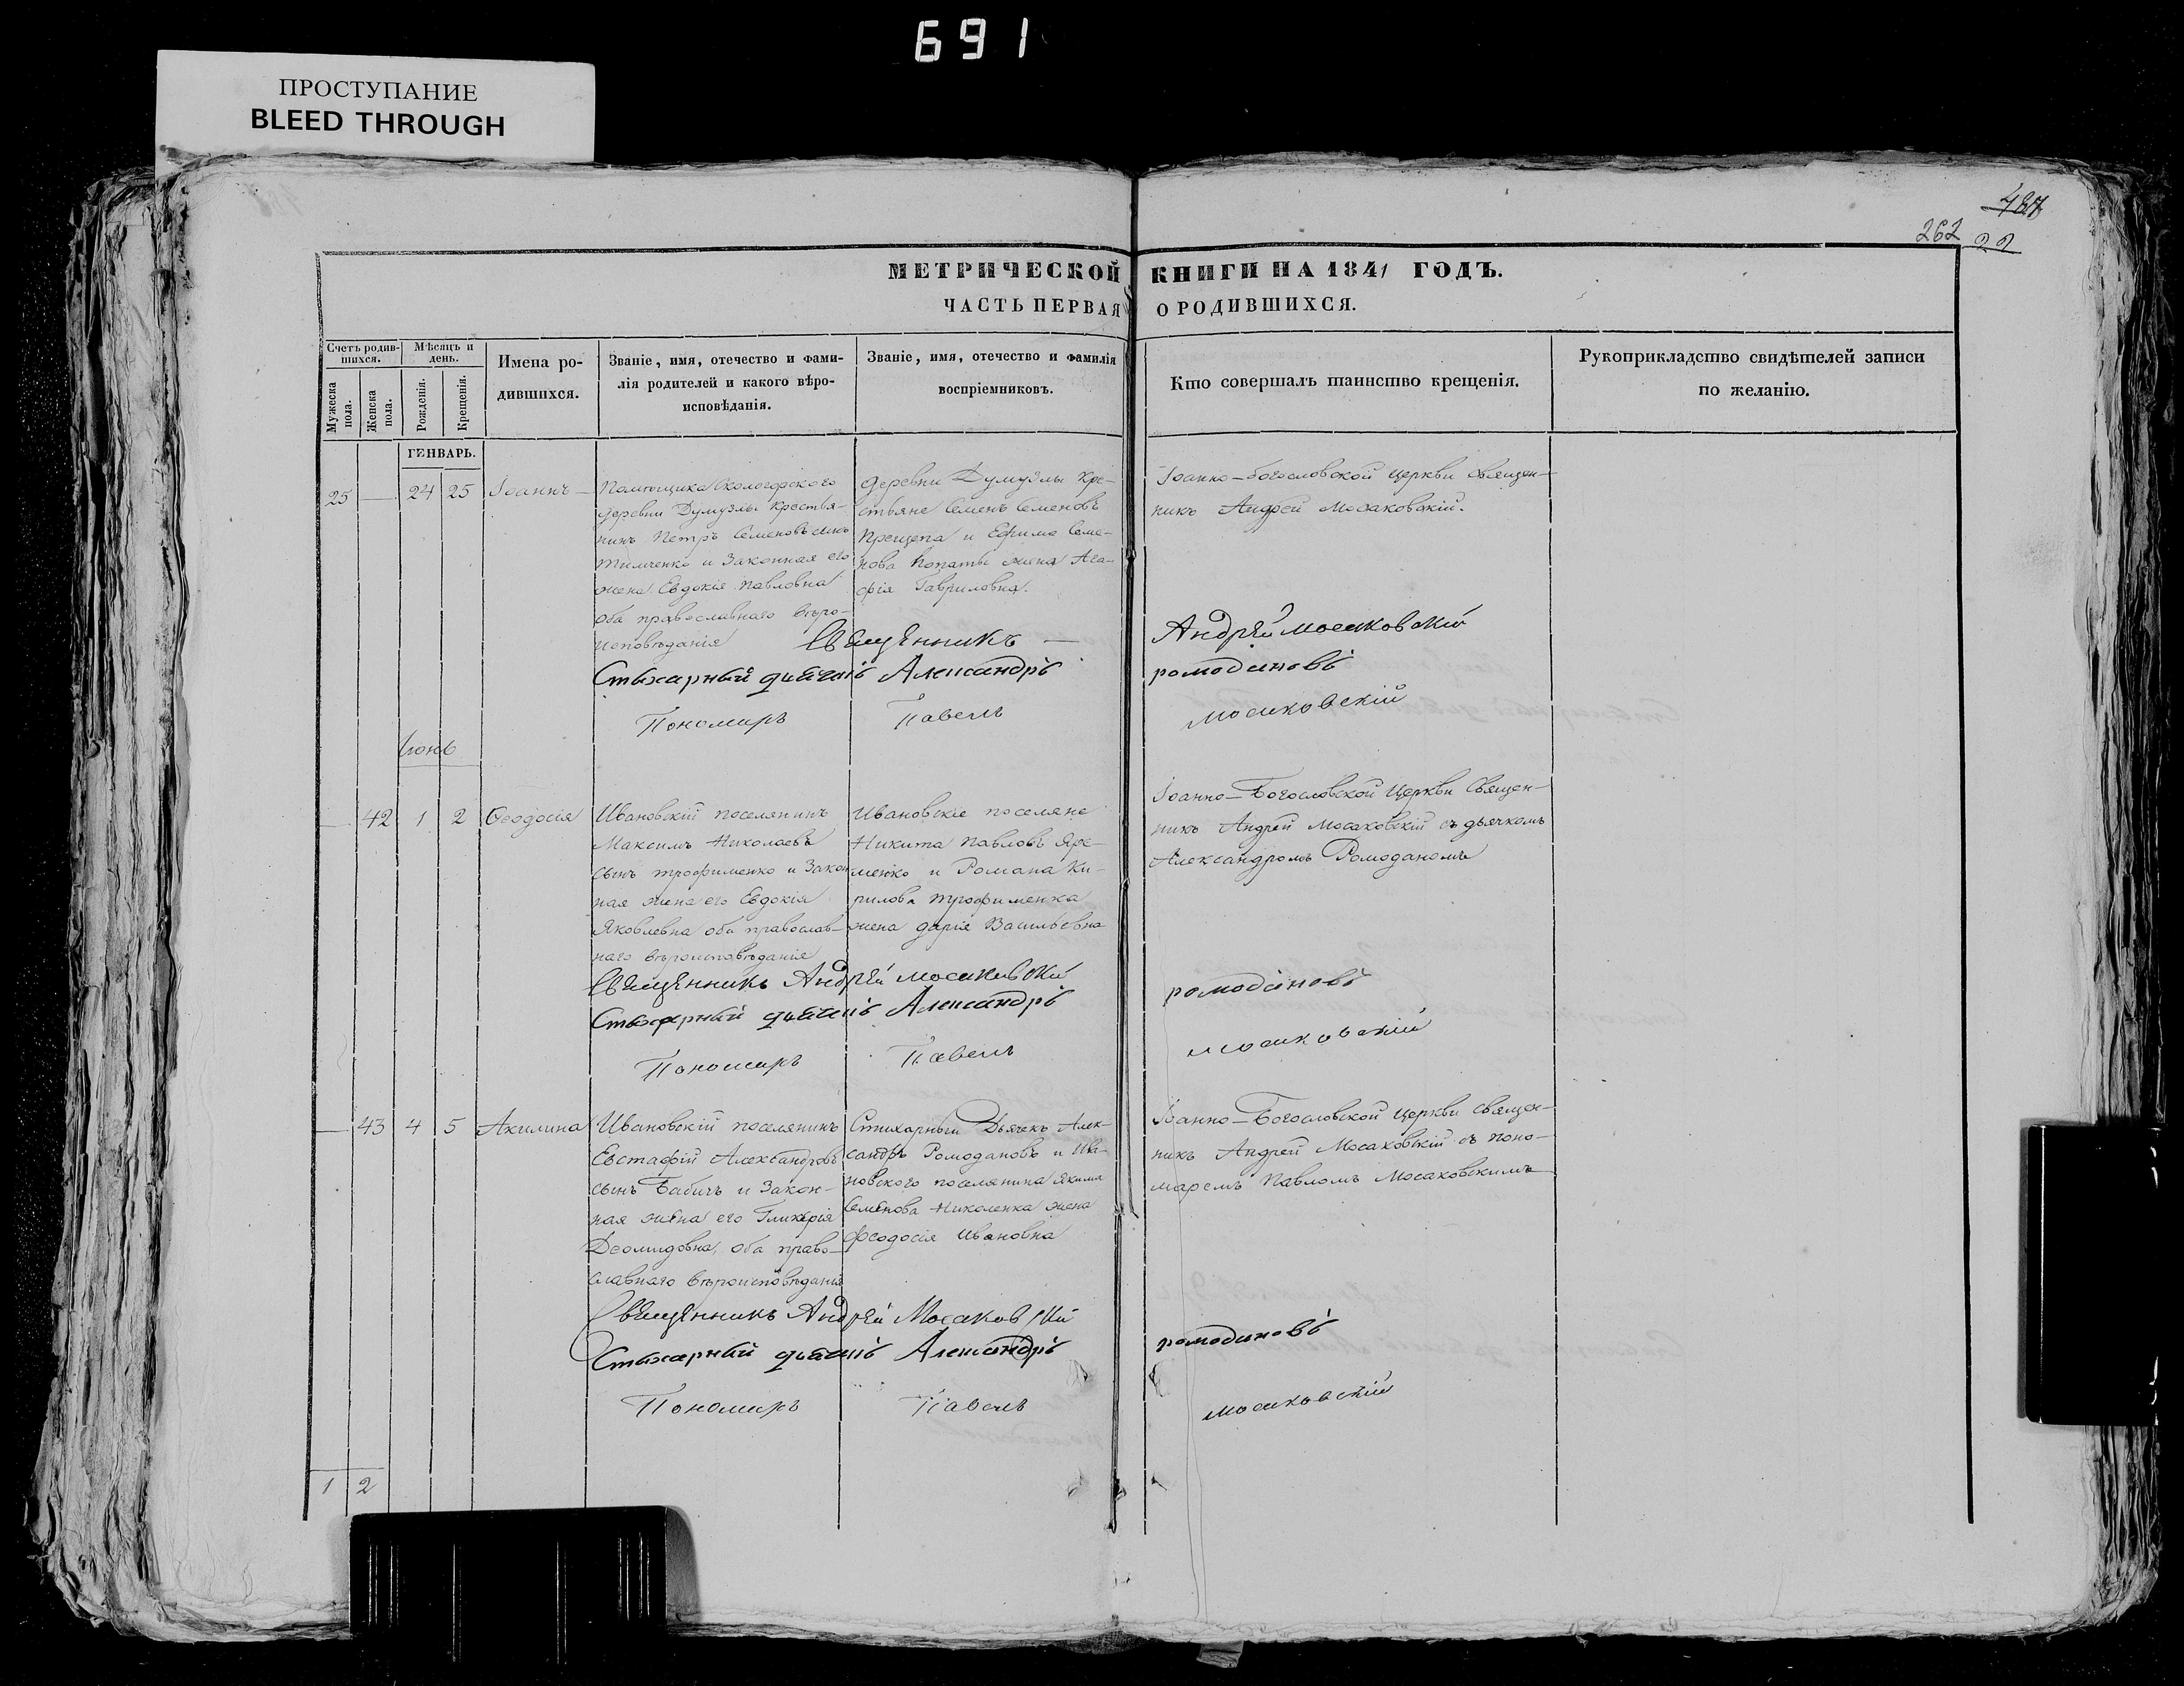 691
ПРОСТУПАНИЕ
BLEED THROUGH
487
262 22
МЕТРИЧЕСКОЙ КНИГИ НА 1841 ГОДЪ.
ЧАСТЬ ПЕРВАЯ О РОДИВШИХСЯ.
Счетъ родив-
шихся.
Мужеска
пола.
Женска
пола.
Мѣсяцъ и
день.
Рожденія.
Крещенія.
Имена ро-
дившихся.
Званіе, имя, отечество и фами-
лія родителей и какого вѣро-
исповѣданія.
Званіе, имя, отечество и фамилія
воспріемниковъ.
Кто совершалъ таинство крещенія.
Рукоприкладство свидѣтелей записи
по желанію.
ГЕНВАРЬ.
25 — 24 25 Іоаннъ —
Помѣщика Окологорского
деревни Думузлы крестья-
нинъ Петръ Семеновъ сынъ
Тимченко и законная его
жена Евдокія Павловна
оба православнаго вѣро-
исповѣданія
деревни Думузлы кре-
стьяне Семенъ Семеновъ
Прещепа и Ефима Семе-
нова Копаты жена Ага-
фія Гавриловна.
Іоанно-Богословской церкви Священ-
никъ Андрей Мосаковскій.
Священникъ — Андрей Мосаковскій
Стихарный дьячекъ Александръ Ромодановъ
Пономарь Павелъ Мосаковскій
Іюнь
— 42 1 2 Ѳеодосія
Ивановскій поселянинъ
Максимъ Николаевъ
сынъ Трофименко и закон
ная жена его Евдокія
Яковлевна оба православ-
наго вѣроисповѣданія
Ивановскіе поселяне
Никита Павловъ Яре-
менко и Романа Ки-
рилова Трофименка
жена Дарія Васильевна
Іоанно-Богословской Церкви Священ-
никъ Андрей Мосаковскій съ дьячкомъ
Александромъ Ромоданомъ
Священникъ Андрей Мосаковскій
Стихарный дьячекъ Александръ Ромодановъ
Пономарь Павелъ Мосаковскій
— 43 4 5 Акилина
Ивановскій поселянинъ
Евстафій Александровъ
сынъ Бабичъ и закон-
ная жена его Гликерія
Деомидовна, оба право-
славнаго вѣроисповѣданія
Стихарный Дьячекъ Алек-
сандръ Ромодановъ и Ива-
новского поселянина Якима
Семенова Николенка жена
Феодосія Ивановна
Іоанно-Богословской церкви Священ-
никъ Андрей Мосаковскій съ поно-
маремъ Павломъ Мосаковскимъ
Священникъ Андрей Мосаковскій
Стихарный дьячекъ Александръ Ромодановъ
Пономарь Павелъ Мосаковскій
1 2